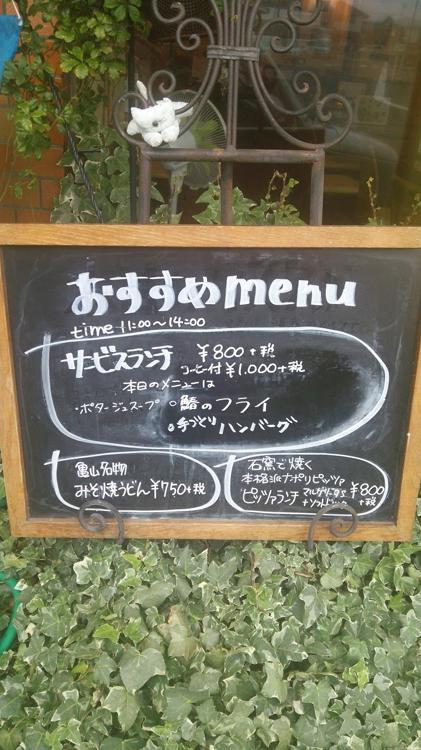 おすすめmenu
time 11:00~14:00
サービスランチ ¥800+税
コーヒー付¥1,000+税
本日のメニューは
・ポタージュスープ 。鰆のフライ
。手づくりハンバーグ
亀山名物
みそ焼うどん¥750+税
石窯で焼く
本格派ナポリピッツァ
ピッツァランチ ¥800
+ソフトドリンク +税